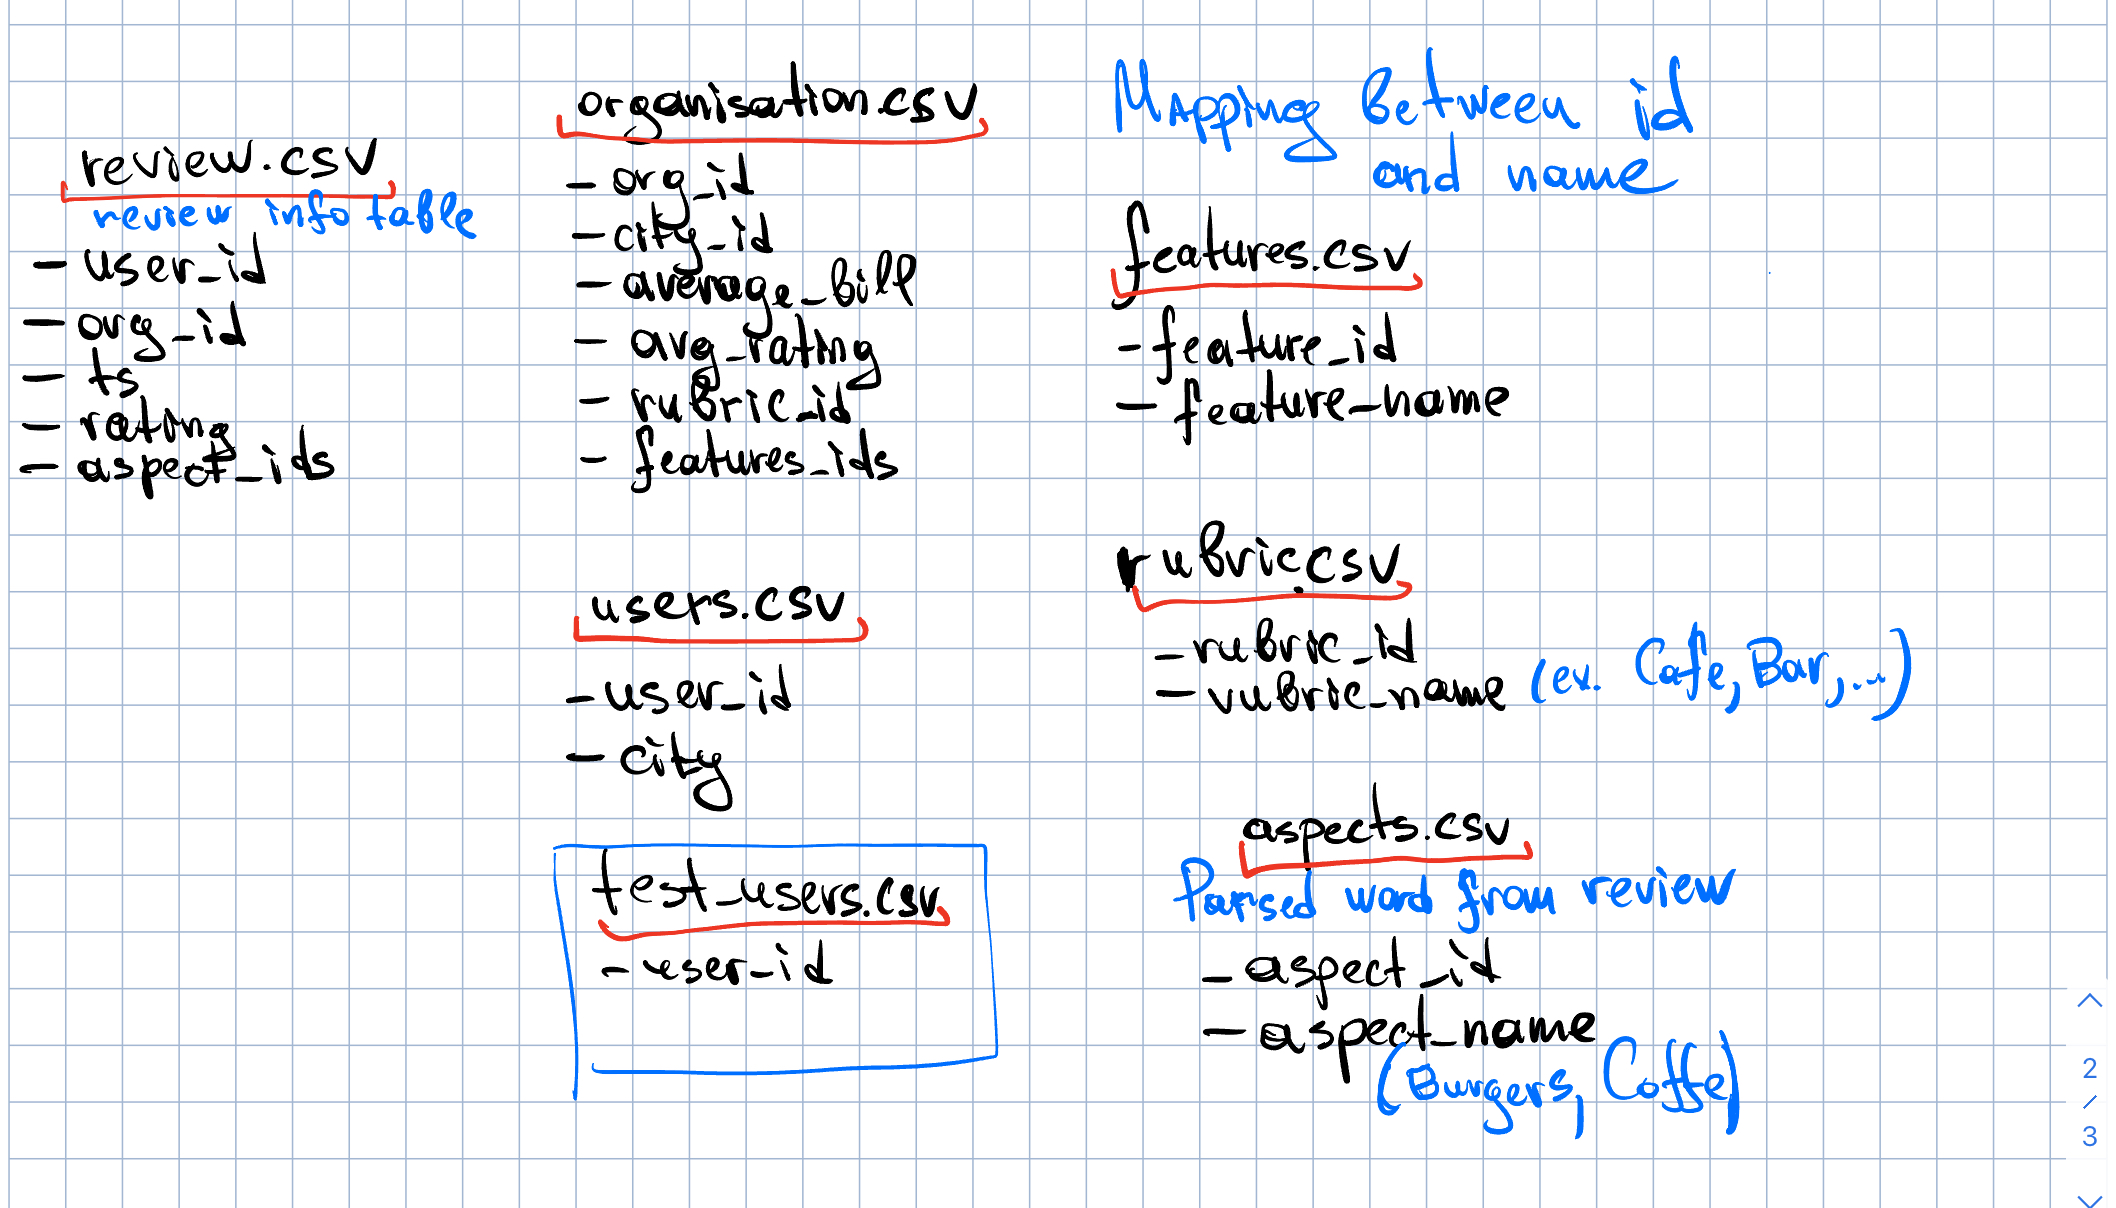 review.csv
review info table
- user_id
- org_id
- ts
- rating
- aspect_ids
organisation.csv
- org_id
- city_id
- average_bill
- avg_rating
- rubric_id
- features_ids
users.csv
- user_id
- city
test_users.csv
- user_id
Mapping between id
and name
features.csv
- feature_id
- feature_name
rubric.csv
- rubric_id
- rubric_name (ex. Cafe, Bar,...)
aspects.csv
Parsed word from review
- aspect_id
- aspect_name
(Burgers, Coffe)
2
/
3